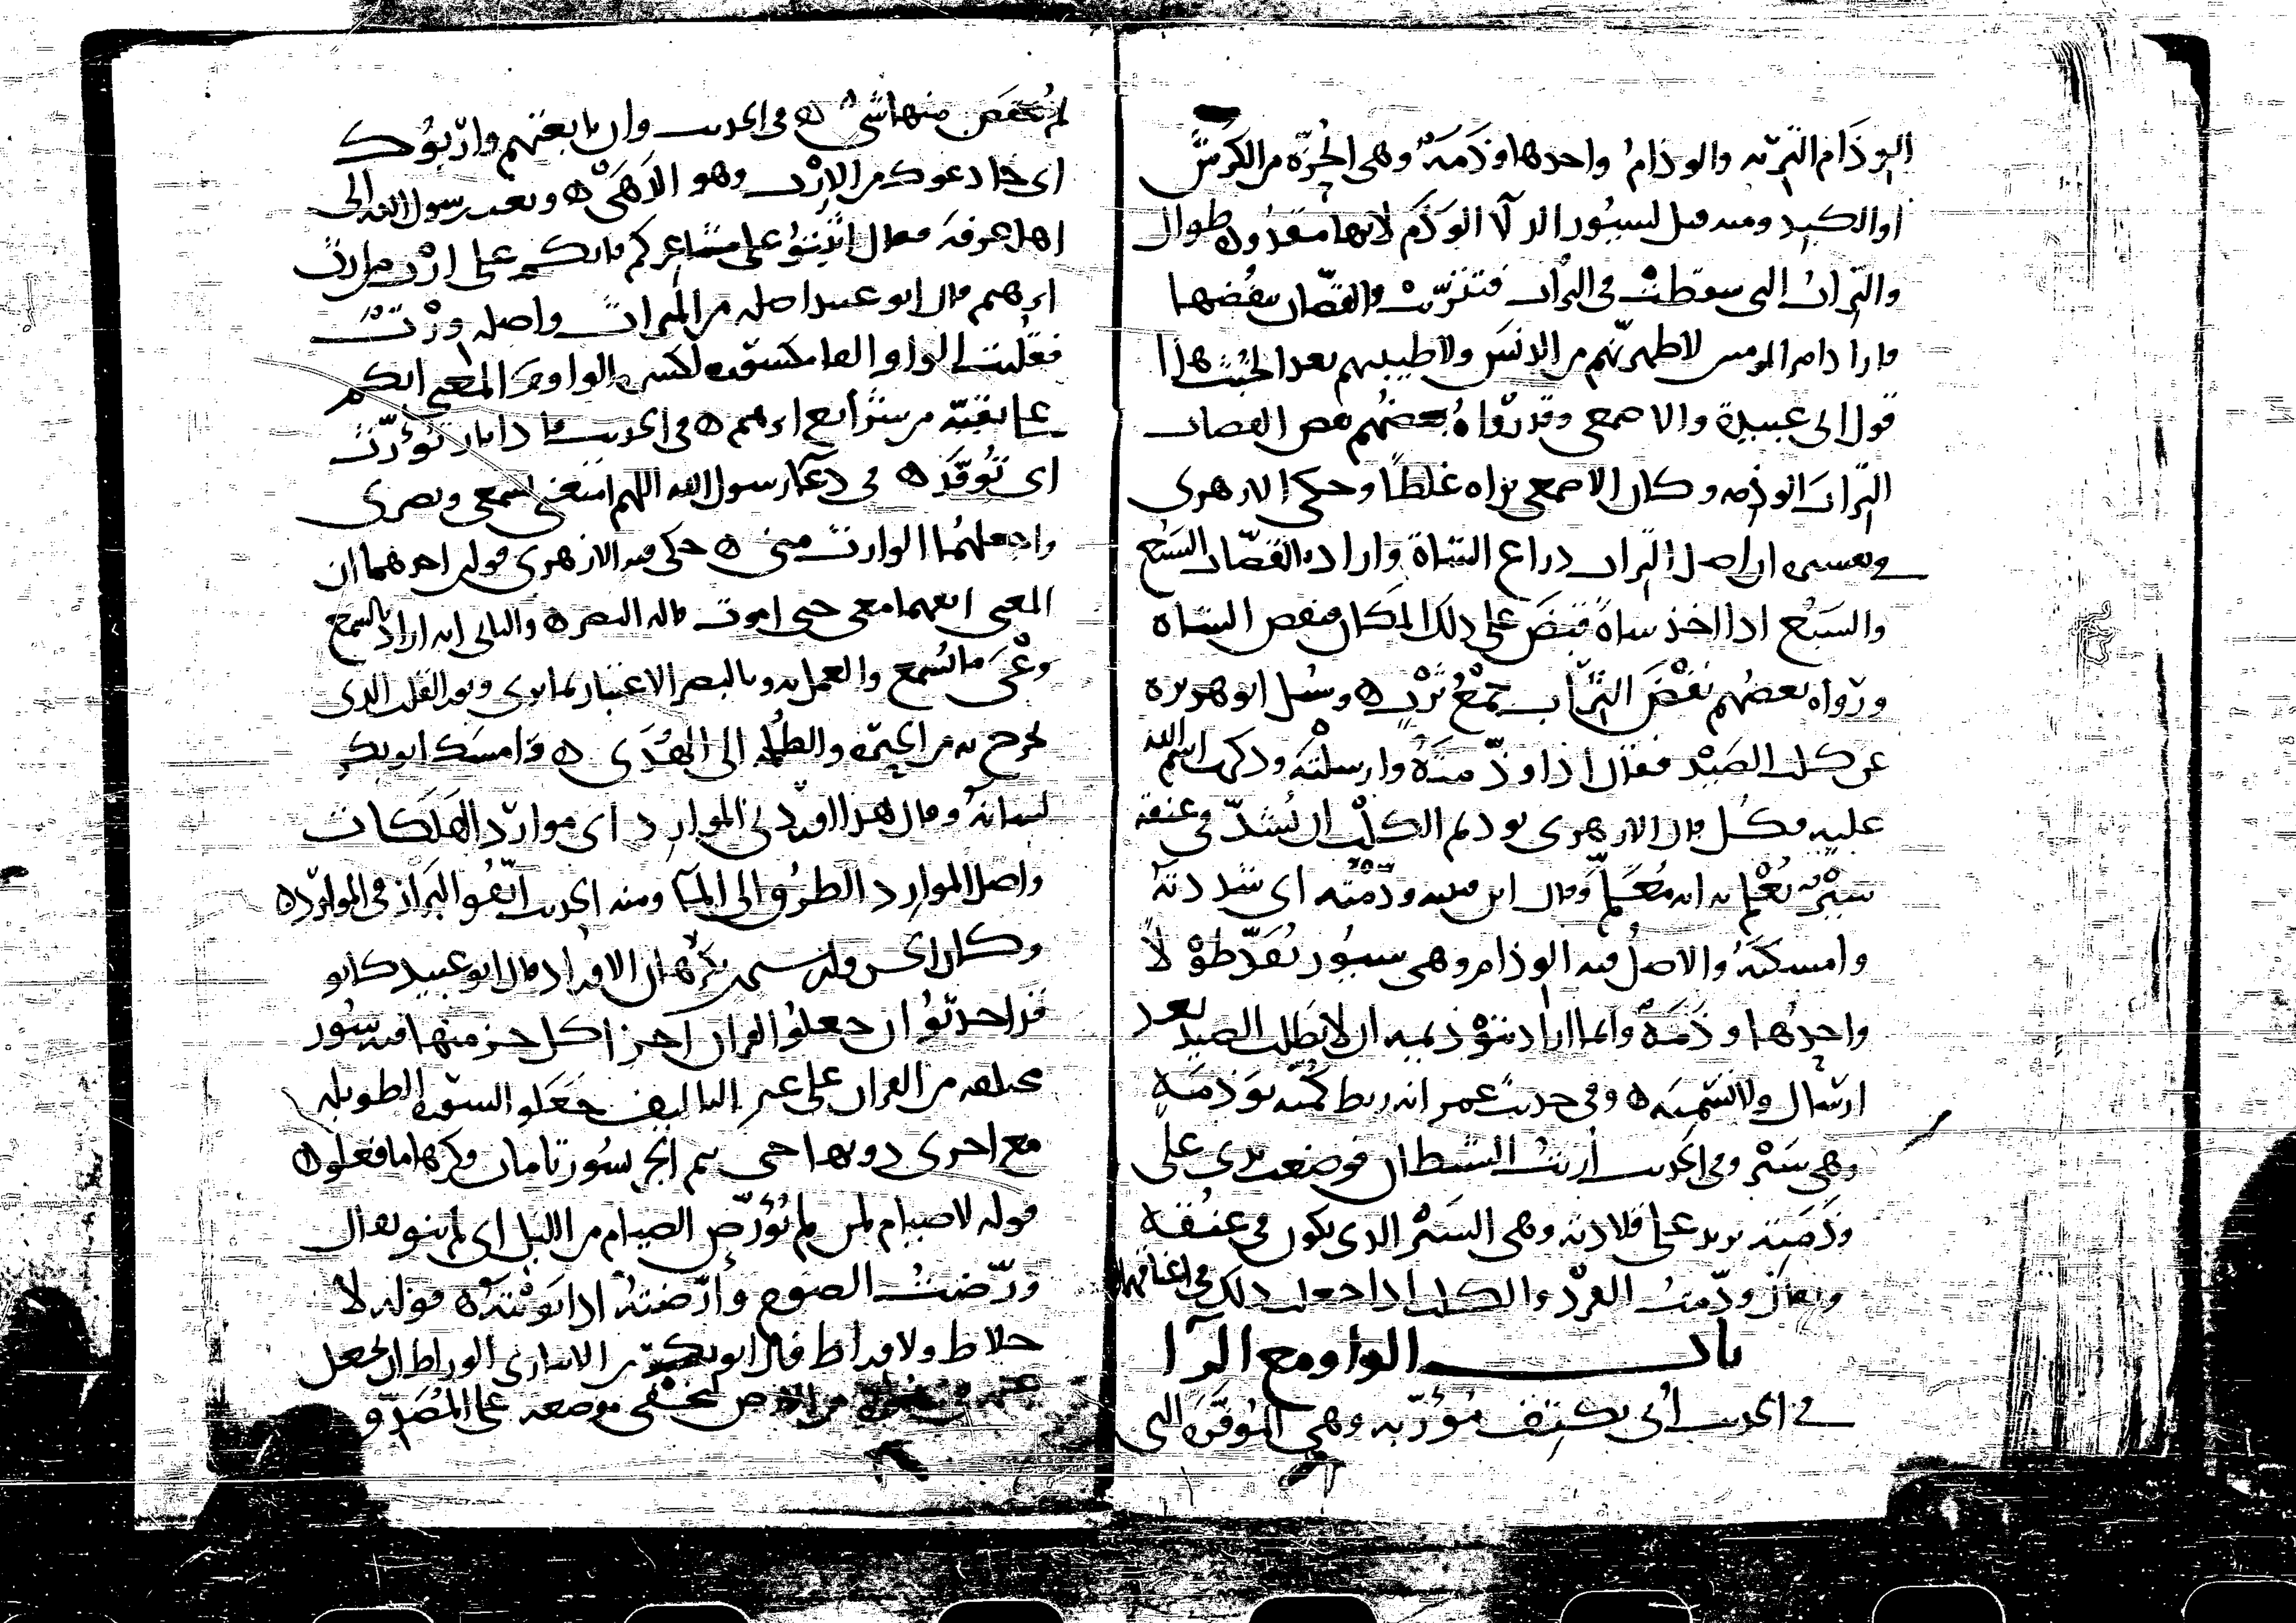 الوذام التربه والوذام واحدها وذمة وهي الحزة من الكرش
او الكبد ومنه قيل لسيور الدلا الوذم لانها مقدودة طوال
والتراب التي سقطت في التراب فتتربت والقصاب ينفضها
واراد امير المومنين لاطهرنهم من الدنس ولاطيبنهم بعد الخبث هذا
قول ابي عبيدة والاصمعي وقد رواه بعضهم نفض القصاب
التراب الوذمه وكان الاصمعي يراه غلطا وحكى الازهري
في تفسيره ان اصل التراب ذراع الشاة واراد بالقصاب السبع
والسبع اذا اخذ شاة قبض على ذلك المكان فنفض الشاة
ورواه بعضهم نفض التراب جمع ترب ه وسئل ابو هريرة
عن كلب الصيد فقال اذا وذمته وارسلته وذكرت اسم الله
عليه فكل قال الازهري توذيم الكلب ان يشد في عنقه
سير يعلم به انه معلم وقال ابن قتيبه وذمته اي شددته
وامسكته والاصل فيه الوذام وهي سيور تقد طولا
واحدها وذمة وانما اراد بتوذيمه ان لا يطلب الصيد بعد
ارسال ولا تسميه ه وفي حديث عمر انه ربط كمه بوذمة
وهي سير وفي الحديث أريت الشيطان فوضعت يدي على
وذمته يريد على قلادته وهي السير الذي يكون في عنقه
ويقال وذمت القرد والكلب اذا جعلت ذلك في اعناقها
باب الواو مع الرا
في الحديث أتي بكتف مؤربه وهي الموفرة التي
لم ينقص منها شي ه في الحديث وان بايعتهم واربوك
اي خادعوك من الارب وهو الدهي ه وبعث رسول الله الى
اهل عرفة فقال اثبتوا على مشاعركم فانكم على ارث من ارث
ابرهيم قال ابو عبيد اصله من الميراث واصله ورث
فقلبت الواو الفا مكسورة لكسرة الواو والمعنى انكم
على بقية من شرايع ابرهيم ه في الحديث فاذا نار تؤرث
اي توقد ه في دعا رسول الله اللهم امتعني بسمعي وبصري
واجعلهما الوارث مني ه حكى فيه الازهري قولين احدهما ان
المعنى ابقهما معي حتى اموت قاله النضر ه والثاني انه اراد بالسمع
وعي ما يسمع والعمل به وبالبصر الاعتبار بما يرى ونور القلب الذي
يخرج به من الحيرة والظلمة الى الهدى ه وامسك ابو بكر
لسانه وقال هذا اوردني الموارد اي موارد الهلكات
واصل الموارد الطرق الى الما ومنه الحديث اتقوا البراز في الموارد ه
وكان الحسن وابن سيرين يكرهان الاوراد قال ابو عبيد كانوا
قد احدثوا ان جعلوا القران اجزا كل جز منها فيه سور
مختلفه من القران على غير التاليف جعلوا السورة الطويله
مع اخرى دونها حتى يتم الجز سورتامان وكرها ما فعلوا ه
قوله لا صيام لمن لم يؤرض الصيام من الليل اي لم ينو يقال
ورضت الصوم وأرضته اذا نويته ه قوله لا
خلاط ولا وراط قال ابو بكر بن الانباري الوراط ان يجعل
غنمه في من الارض لتخفى موضعه على المصدق